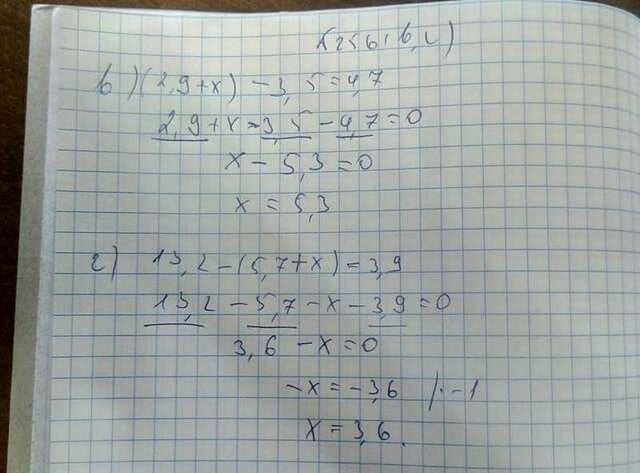 (256 (в, г)
в) (2,9+x) - 3,5 = 4,7
2,9 + x - 3,5 - 4,7 = 0
x - 5,3 = 0
x = 5,3
г) 13,2 - (5,7+x) = 3,9
13,2 - 5,7 - x - 3,9 = 0
3,6 - x = 0
-x = -3,6 /·-1
x = 3,6.